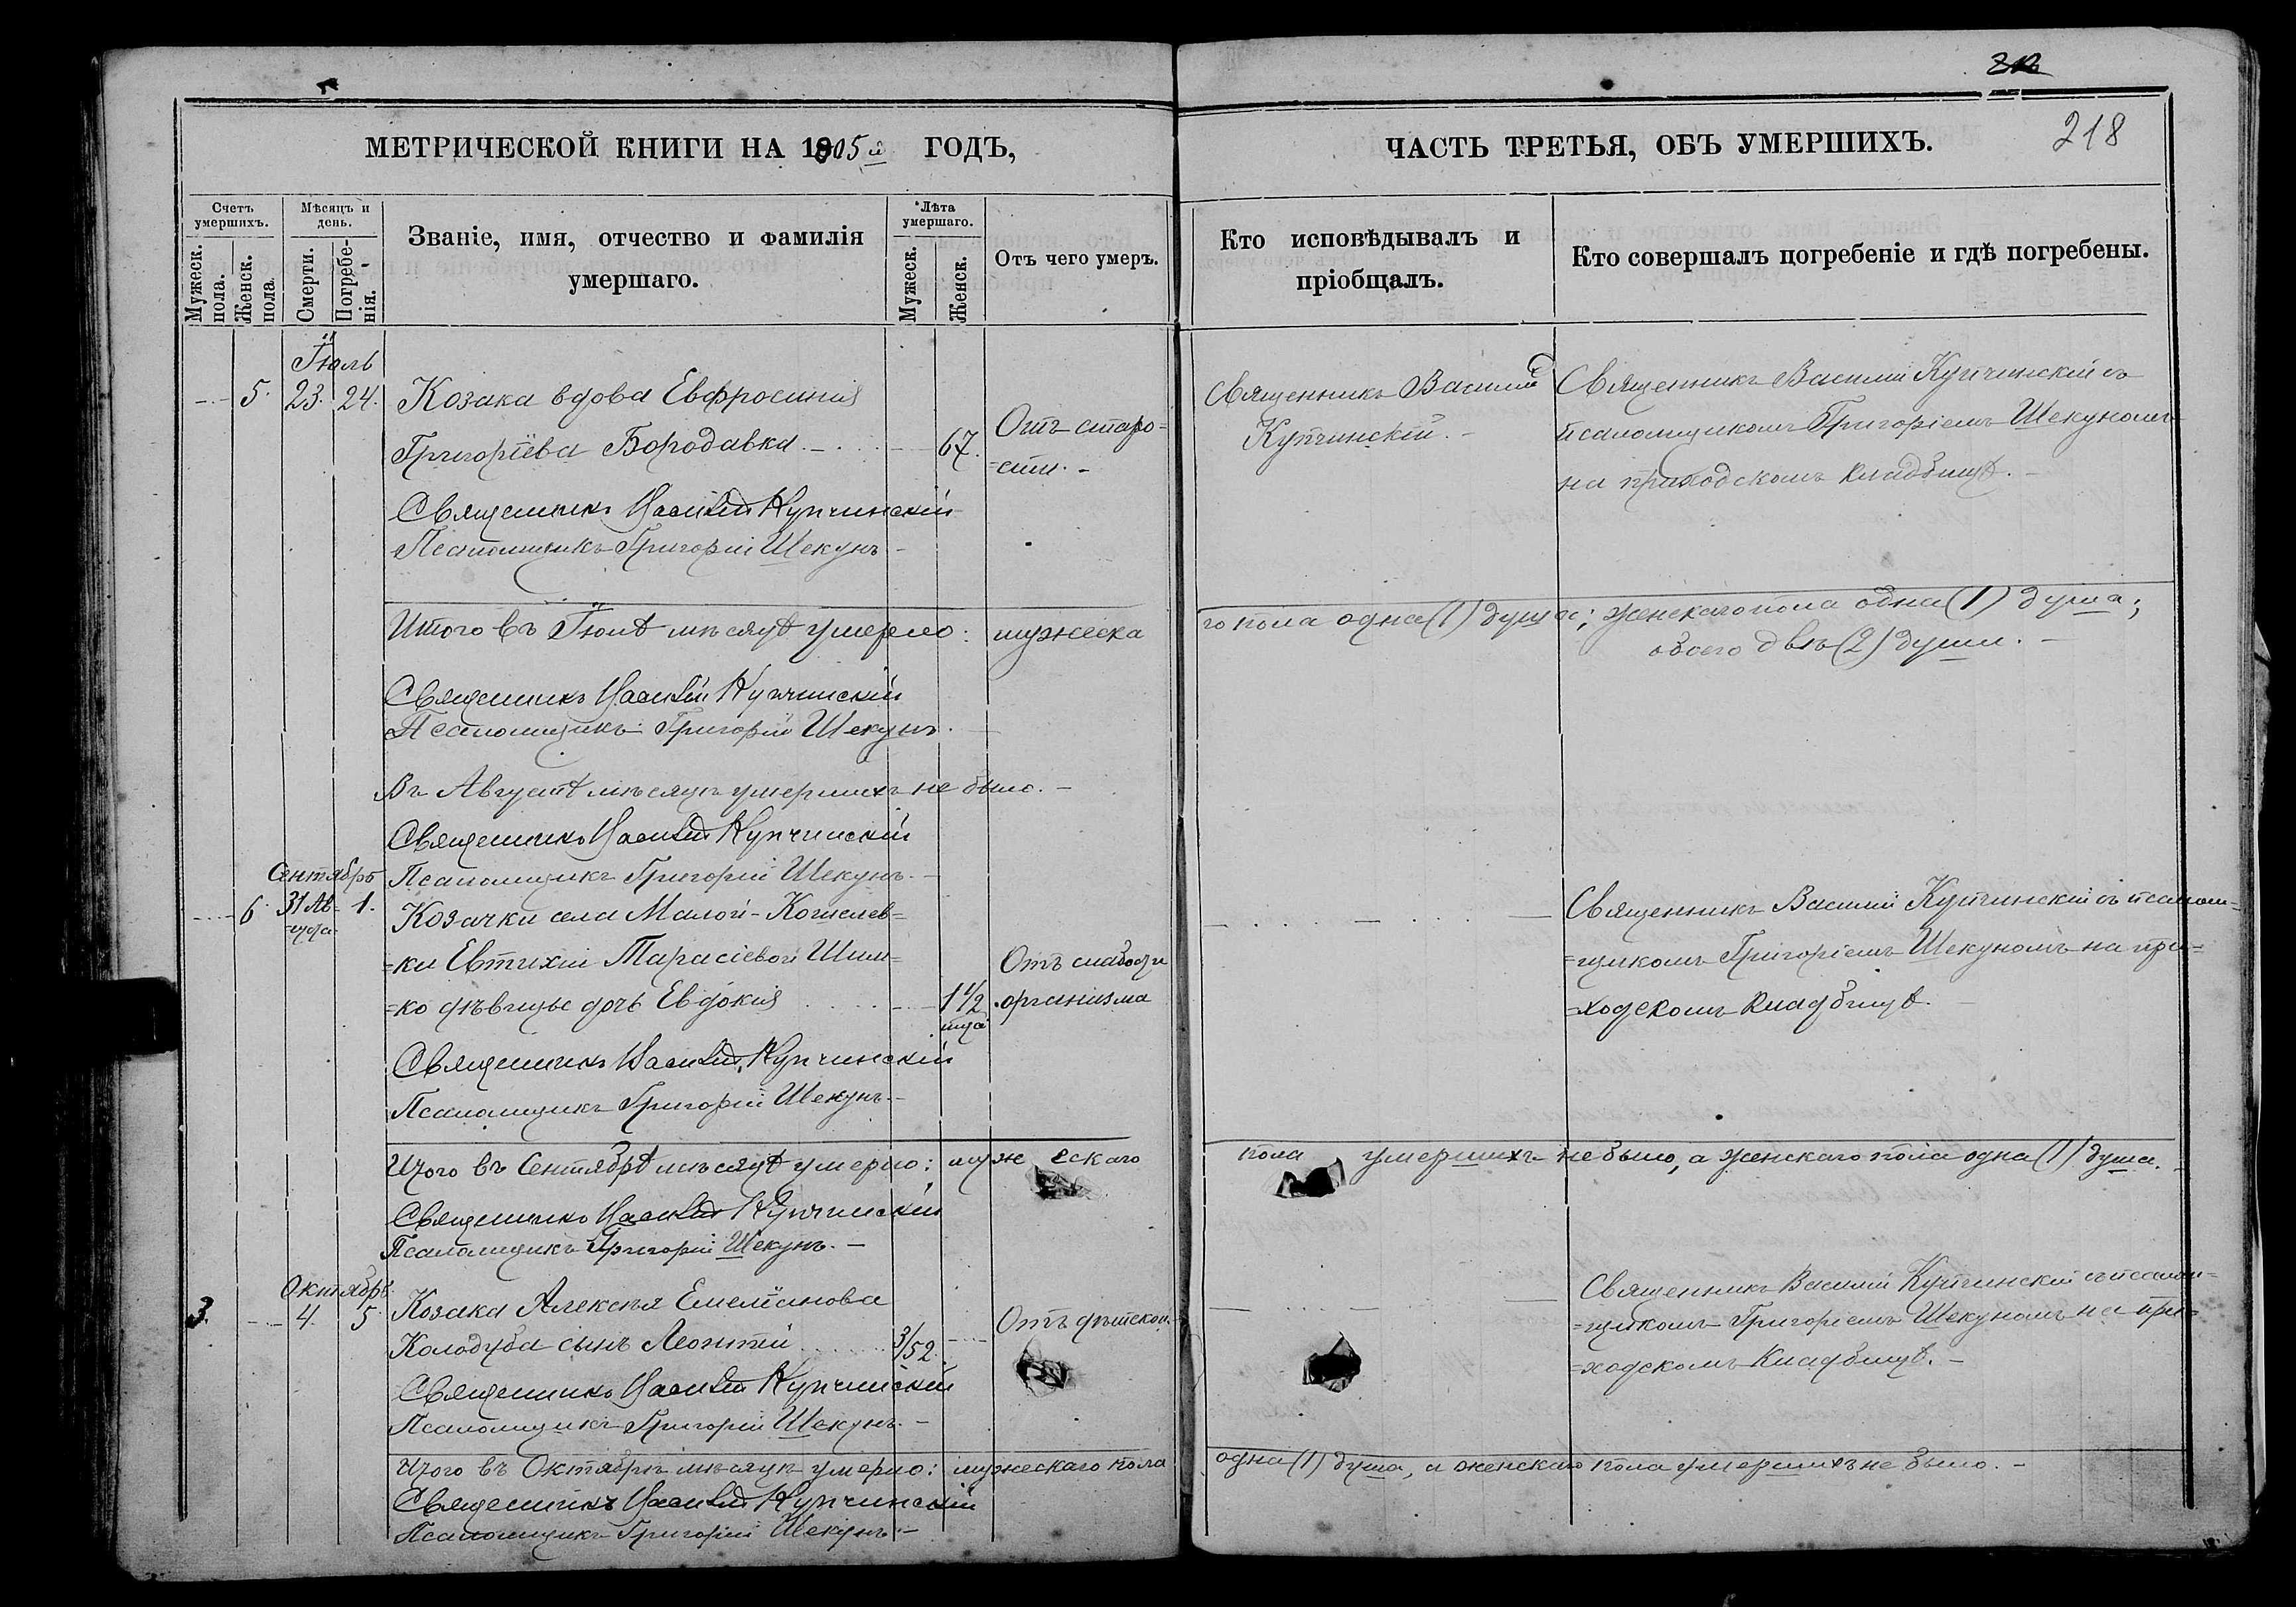 218
МЕТРИЧЕСКОЙ КНИГИ НА 1905й ГОДЪ,
ЧАСТЬ ТРЕТЬЯ, ОБЪ УМЕРШИХЪ.
Счетъ умершихъ.
Мужеск. пола.
Женск. пола.
Мѣсяцъ и день.
Смерти.
Погребе-нія.
Званіе, имя, отчество и фамилія
умершаго.
Лѣта умершаго.
Мужеск.
Женск.
Отъ чего умеръ.
Кто исповѣдывалъ и
пріобщалъ.
Кто совершалъ погребеніе и гдѣ погребены.
Іюль
5. 23. 24. Козака вдова Евфросинія
Григоріева Бородавка 67.
Отъ старо=
=сти.
Священникъ Василій
Купчинскій.
Священникъ Василій Купчинскій съ
псаломщикомъ Григоріемъ Шекуномъ
на приходскомъ кладбищѣ.
Священникъ Василій Купчинскій
Псаломщикъ Григорій Шекунъ
Итого въ Іюлѣ мѣсяцѣ умерло: мужеска
го пола одна (1) душа; женскаго пола одна (1) душа;
обоего двѣ (2) души.
Священникъ Василій Купчинскій
Псаломщикъ Григорій Шекунъ.
Въ Августѣ мѣсяцѣ умершихъ не было.
Священникъ Василій Купчинскій
Псаломщикъ Григорій Шекунъ.
Сентябрь
6. 31 Ав=
=густа 1.
Козачки села Малой-Кошелев=
=ки Евтихіи Тарасіевой Шим=
=ко дѣвицы дочь Евдокія 1½
мѣсяца
Отъ слабости
организма
Священникъ Василій Купчинскій съ псалом=
=щикомъ Григоріемъ Шекуномъ на при=
=ходскомъ кладбищѣ.
Священникъ Василій Купчинскій
Псаломщикъ Григорій Шекунъ.
Итого въ Сентябрѣ мѣсяцѣ умерло: мужескаго
пола умершихъ не было, а женскаго пола одна (1) душа.
Священникъ Василій Купчинскій
Псаломщикъ Григорій Шекунъ.
Октябрь
3. 4. 5. Козака Алексѣя Емеліанова
Колодуба сынъ Леонтій 3/52.
Отъ дѣтской.
Священникъ Василій Купчинскій съ псалом=
=щикомъ Григоріемъ Шекуномъ на при=
=ходскомъ кладбищѣ.
Священникъ Василій Купчинскій
Псаломщикъ Григорій Шекунъ.
Итого въ Октябрѣ мѣсяцѣ умерло: мужескаго пола
одна (1) душа, а женскаго пола умершихъ не было.
Священникъ Василій Купчинскій
Псаломщикъ Григорій Шекунъ.